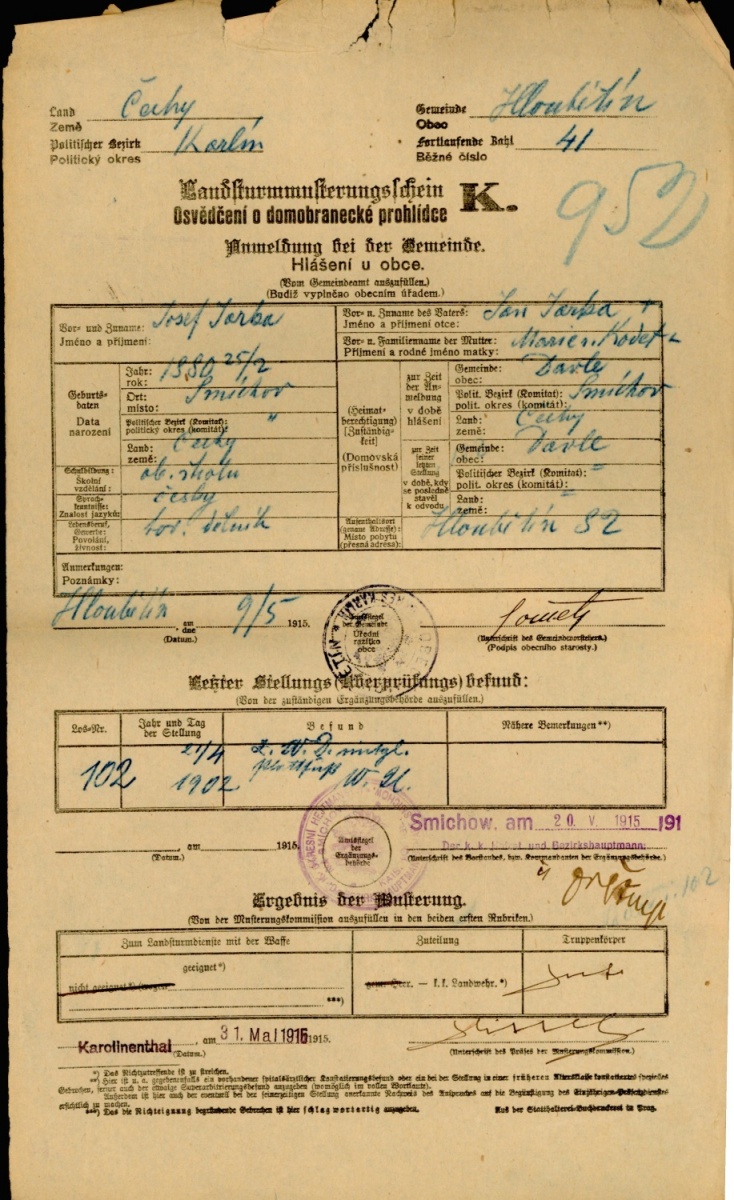 Land
Země Čechy
Politischer Bezirk
Politický okres Karlín
Gemeinde
Obec Hloubětín
Fortlaufende Zahl
Běžné číslo 41
952
Landsturmmusterungsschein K.
Osvědčení o domobranecké prohlídce
Anmeldung bei der Gemeinde.
Hlášení u obce.
(Vom Gemeindeamt auszufüllen.)
(Budiž vyplněao obecním úřadem.)
Vor- und Zuname:
Jméno a příjmení: Josef
Vor- n. Zuname des Vaters:
Jméno a příjmení otce: Jan
Vor- n. Familienname der Mutter:
Příjmení a rodné jméno matky: Marie r.
Geburts-
daten
Data
narození
Jahr:
rok: 1880 25/2
Ort:
místo: Smíchov
Politischer Bezirk (Komitat):
politický okres (komitát): "
Land:
země: Čechy
Schulbildung:
Školní
vzdělání: ob. školu
Sprach-
kenntnisse:
Znalost jazyků: česky
Lebensberuf,
Gewerbe:
Povolání,
živnost: tov. dělník
(Heimat-
berechtigung)
(Zuständig-
keit)
(Domovská
příslušnost)
zur Zeit
der An-
meldung
v době
hlášení
Gemeinde:
obec: Davle
Polit. Bezirk (Komitat):
polit. okres (komitát): Smíchov
Land:
země: Čechy
zur Zeit
seiner
letzten
Stellung
v době, kdy
se posledně
stavěl
k odvodu
Gemeinde:
obec: Davle
Politischer Bezirk (Komitat):
polit. okres (komitát): "
Land:
země: "
Aufenthaltsort
(genaue Adresse):
Místo pobytu
(přesná adresa): Hloubětín 82
Anmerkungen:
Poznámky:
Hloubětín, am
dne 9/5 1915.
(Datum.)
Amtssiegel
der Gemeinde
Úřední
razítko
obce
(Unterschrift des Gemeindevorstehers.)
(Podpis obecního starosty.)
Letzter Stellungs(Überprüfungs)befund:
(Von der zuständigen Ergänzungsbehörde auszufüllen.)
Los-Nr.
Jahr und Tag
der Stellung
Befund
Nähere Bemerkungen**)
102
21/4
1902
, am 1915.
(Datum.)
Amtssiegel
der
Ergänzungs-
behörde
Smichow, am 20 V. 1915 191
Der k. k. und Bezirkshauptmann:
(Unterschrift des Vorstandes, bzw. Kommandanten der Ergänzungsbehörde.)
Ergebnis der Musterung.
(Von der Musterungskommission auszufüllen in den beiden ersten Rubriken.)
Zum Landsturmdienste mit der Waffe
Zuteilung
Truppenkörper
geeignet*)
nicht geeignet
***)
gem. Heer. — k. k. Landwehr.*)
Karolinenthal, am 31. Mai 1915 1915.
(Datum.)
(Unterschrift des Präses der Musterungskommission.)
*) Das Nichtzutreffende ist zu streichen.
**) Hier ist u. a. gegebenenfalls ein vorhandener spitalsärztlicher Konstatierungsbefund oder ein bei der Stellung in einer früheren Altersklasse konstatiertes spezielles
Gebrechen, ferner auch der etwaige Superarbitrierungsbefund anzugeben (womöglich im vollen Wortlaute).
Außerdem ist hier auch der eventuell bei der seinerzeitigen Stellung anerkannte Nachweis des Anspruches auf die Begünstigung des Einjährigen-Präsenzdienstes
ersichtlich zu machen.
***) Das die Nichteignung begründende Gebrechen ist hier schlagwortartig anzugeben.
Aus der Statthalterei-Buchdruckerei in Prag.